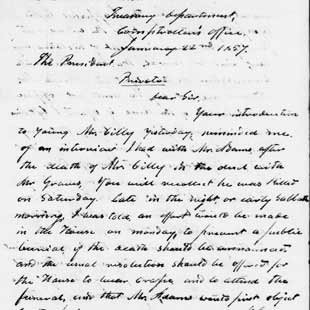 Treasury Department,
Comptroller's Office,
January 22nd 1857.
The President
Private
Dear Sir,
Your introduction
to young Mr. Cilley yesterday, reminded me
of an interview I had with Mr Adams, after
the death of Mr. Cilley in the duel with
Mr. Graves. You will recollect he was killed
on Saturday. Late in the night, or early Sabbath
morning, I was told an effort would be made
in the House on Monday to prevent a public
burial if the death should be announced
and the usual resolution should be offered for
the House to wear crape, and to attend the
funeral, and that Mr. Adams would first object